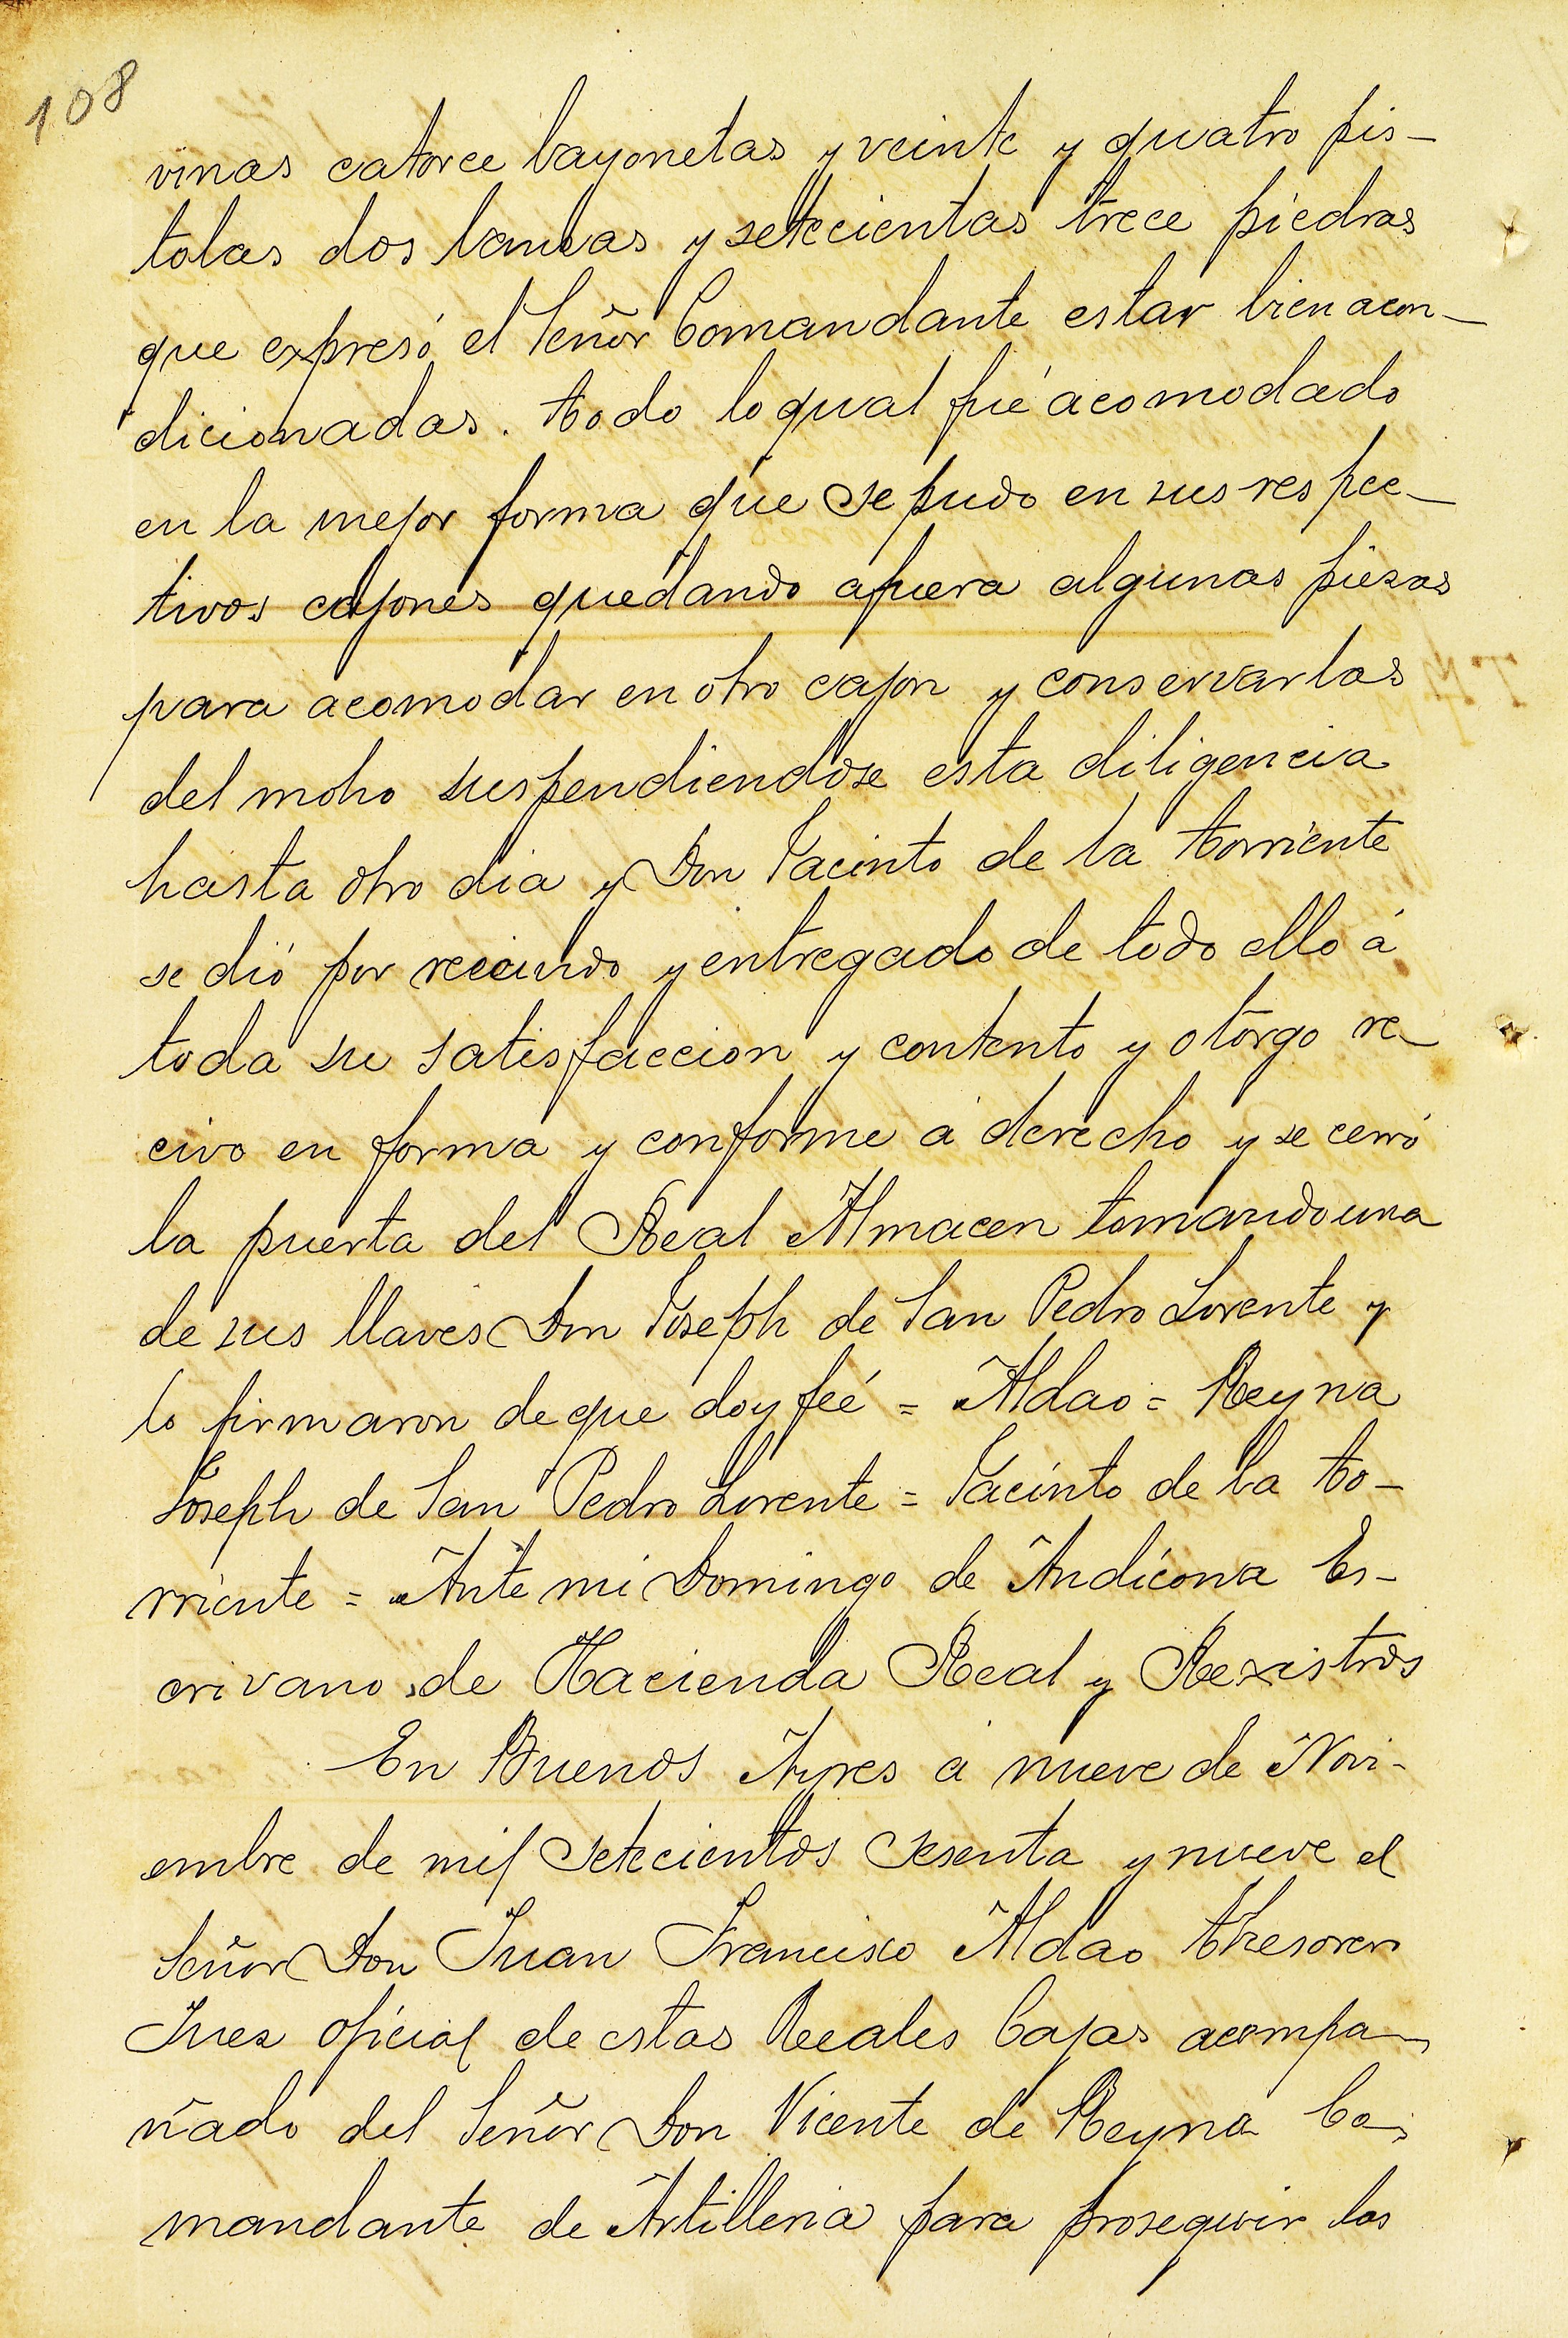 108
vinas catorce bayonetas y veinte y quatro pis-
tolas dos lanzas y setecientas trece piedras
que expresó el Señor Comandante estar bien acon-
dicionadas. todo lo qual fué acomodado
en la mejor forma que se pudo en sus respec-
tivos cajones quedando afuera algunas piezas
para acomodar en otro cajon y conservarlas
del moho suspendiendose esta diligencia
hasta otro dia y Don Jacinto de la torriente
se dió por recivido y entregado de todo ello á
toda su satisfaccion y contento y otorgo re-
civo en forma y conforme á derecho y se cerró
la puerta del Real Almacen tomando una
de sus llaves Don Joseph de San Pedro Lorente y
lo firmaron de que doy feé = Aldao = Reyna
Joseph de San Pedro Lorente = Jacinto de la to-
rriente = Ante mi Domingo de Andicona Es-
crivano de Hacienda Real y Rexistros
En Buenos Ayres á nueve de Novi-
embre de mil setecientos sesenta y nueve el
Señor Don Juan Francisco Aldao thesorero
Juez oficial de estas Reales Cajas acompa-
ñado del Señor Don Vicente de Reyna Co-
mandante de Artilleria para proseguir las